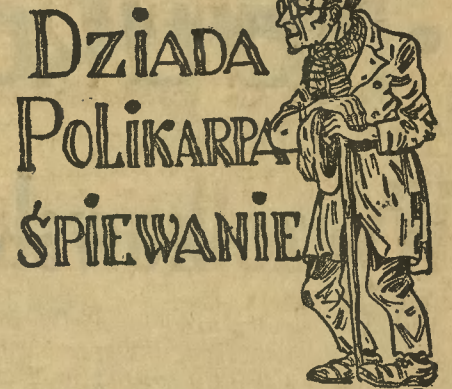 DZiADA
POLiKARPA
ŚPiEWANiE